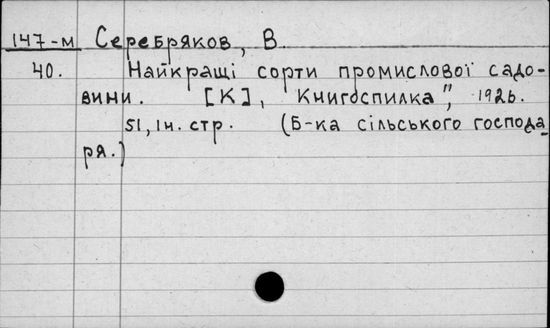 147-м Серебряков, В.
40. Найкращі сорти промислової садо-
вини. [К], Книгоспилка", 1926.
51, Iн. стр. (Б-ка сільського господа
ря.)